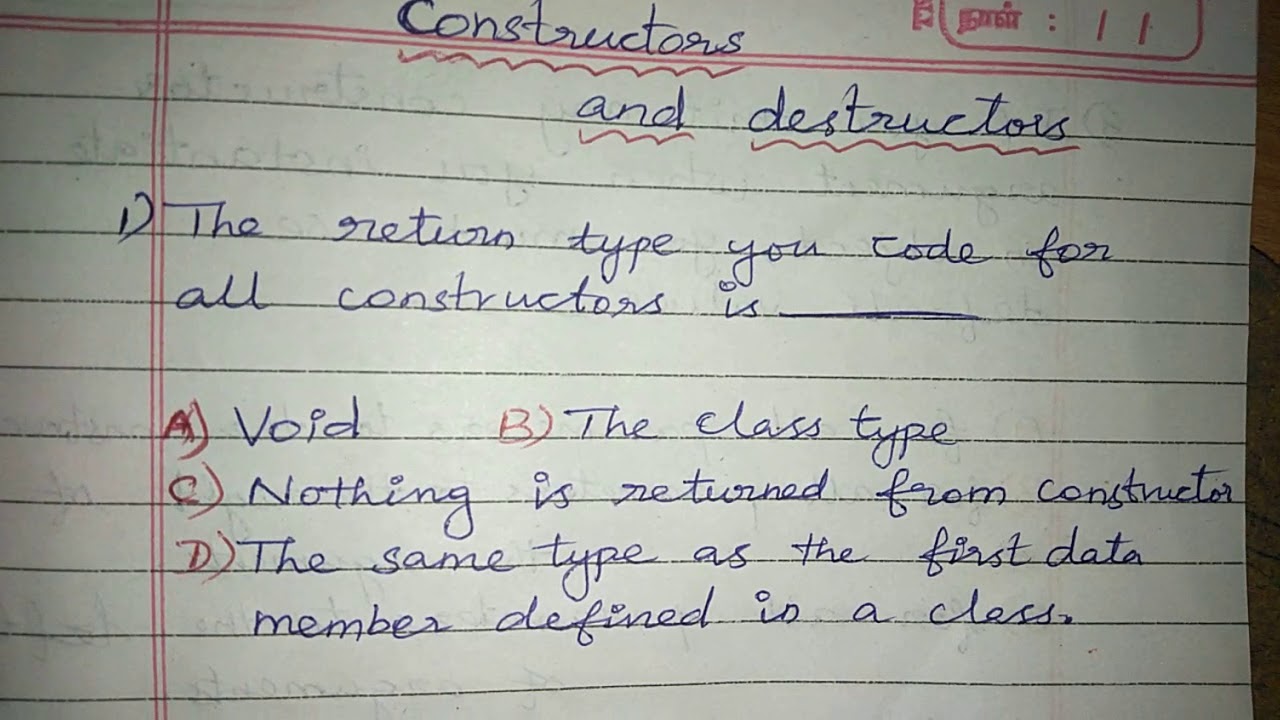 Constructors
நாள் : / /
and destructors
1) The return type you code for
all constructors is ______
A) Void B) The class type
C) Nothing is returned from constructor
D) The same type as the first data
member defined in a class.